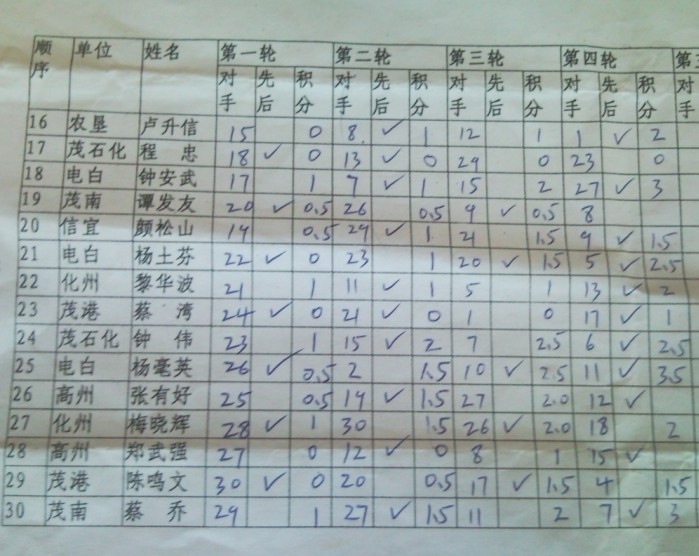 顺序 单位 姓名 第一轮 第二轮 第三轮 第四轮
对手 先后 积分 对手 先后 积分 对手 先后 积分 对手 先后 积分 对手
16 农垦 卢升信 15 0 8 ✓ 1 12 1 1 ✓ 2
17 茂石化 程忠 18 ✓ 0 13 ✓ 0 29 0 23 0
18 电白 钟安武 17 1 7 ✓ 1 15 2 27 ✓ 3
19 茂南 谭发友 20 ✓ 0.5 26 0.5 9 ✓ 0.5 8
20 信宜 颜松山 19 0.5 29 ✓ 1 21 1.5 9 ✓ 1.5
21 电白 杨土芬 22 ✓ 0 23 1 20 ✓ 1.5 5 ✓ 2.5
22 化州 黎华波 21 1 11 ✓ 1 5 1 13 ✓ 2
23 茂港 蔡湾 24 ✓ 0 21 ✓ 0 1 0 17 ✓ 1
24 茂石化 钟伟 23 1 15 ✓ 2 7 2.5 6 ✓ 2.5
25 电白 杨毫英 26 ✓ 0.5 2 1.5 10 ✓ 2.5 11 ✓ 3.5
26 高州 张有好 25 0.5 19 ✓ 1.5 27 2.0 12 ✓
27 化州 梅晓辉 28 ✓ 1 30 1.5 26 ✓ 2.0 18 2
28 高州 郑武强 27 0 12 ✓ 0 8 1 15 ✓
29 茂港 陈鸣文 30 ✓ 0 20 0.5 17 ✓ 1.5 4 1.5
30 茂南 蔡乔 29 1 27 ✓ 1.5 11 2 7 ✓ 3